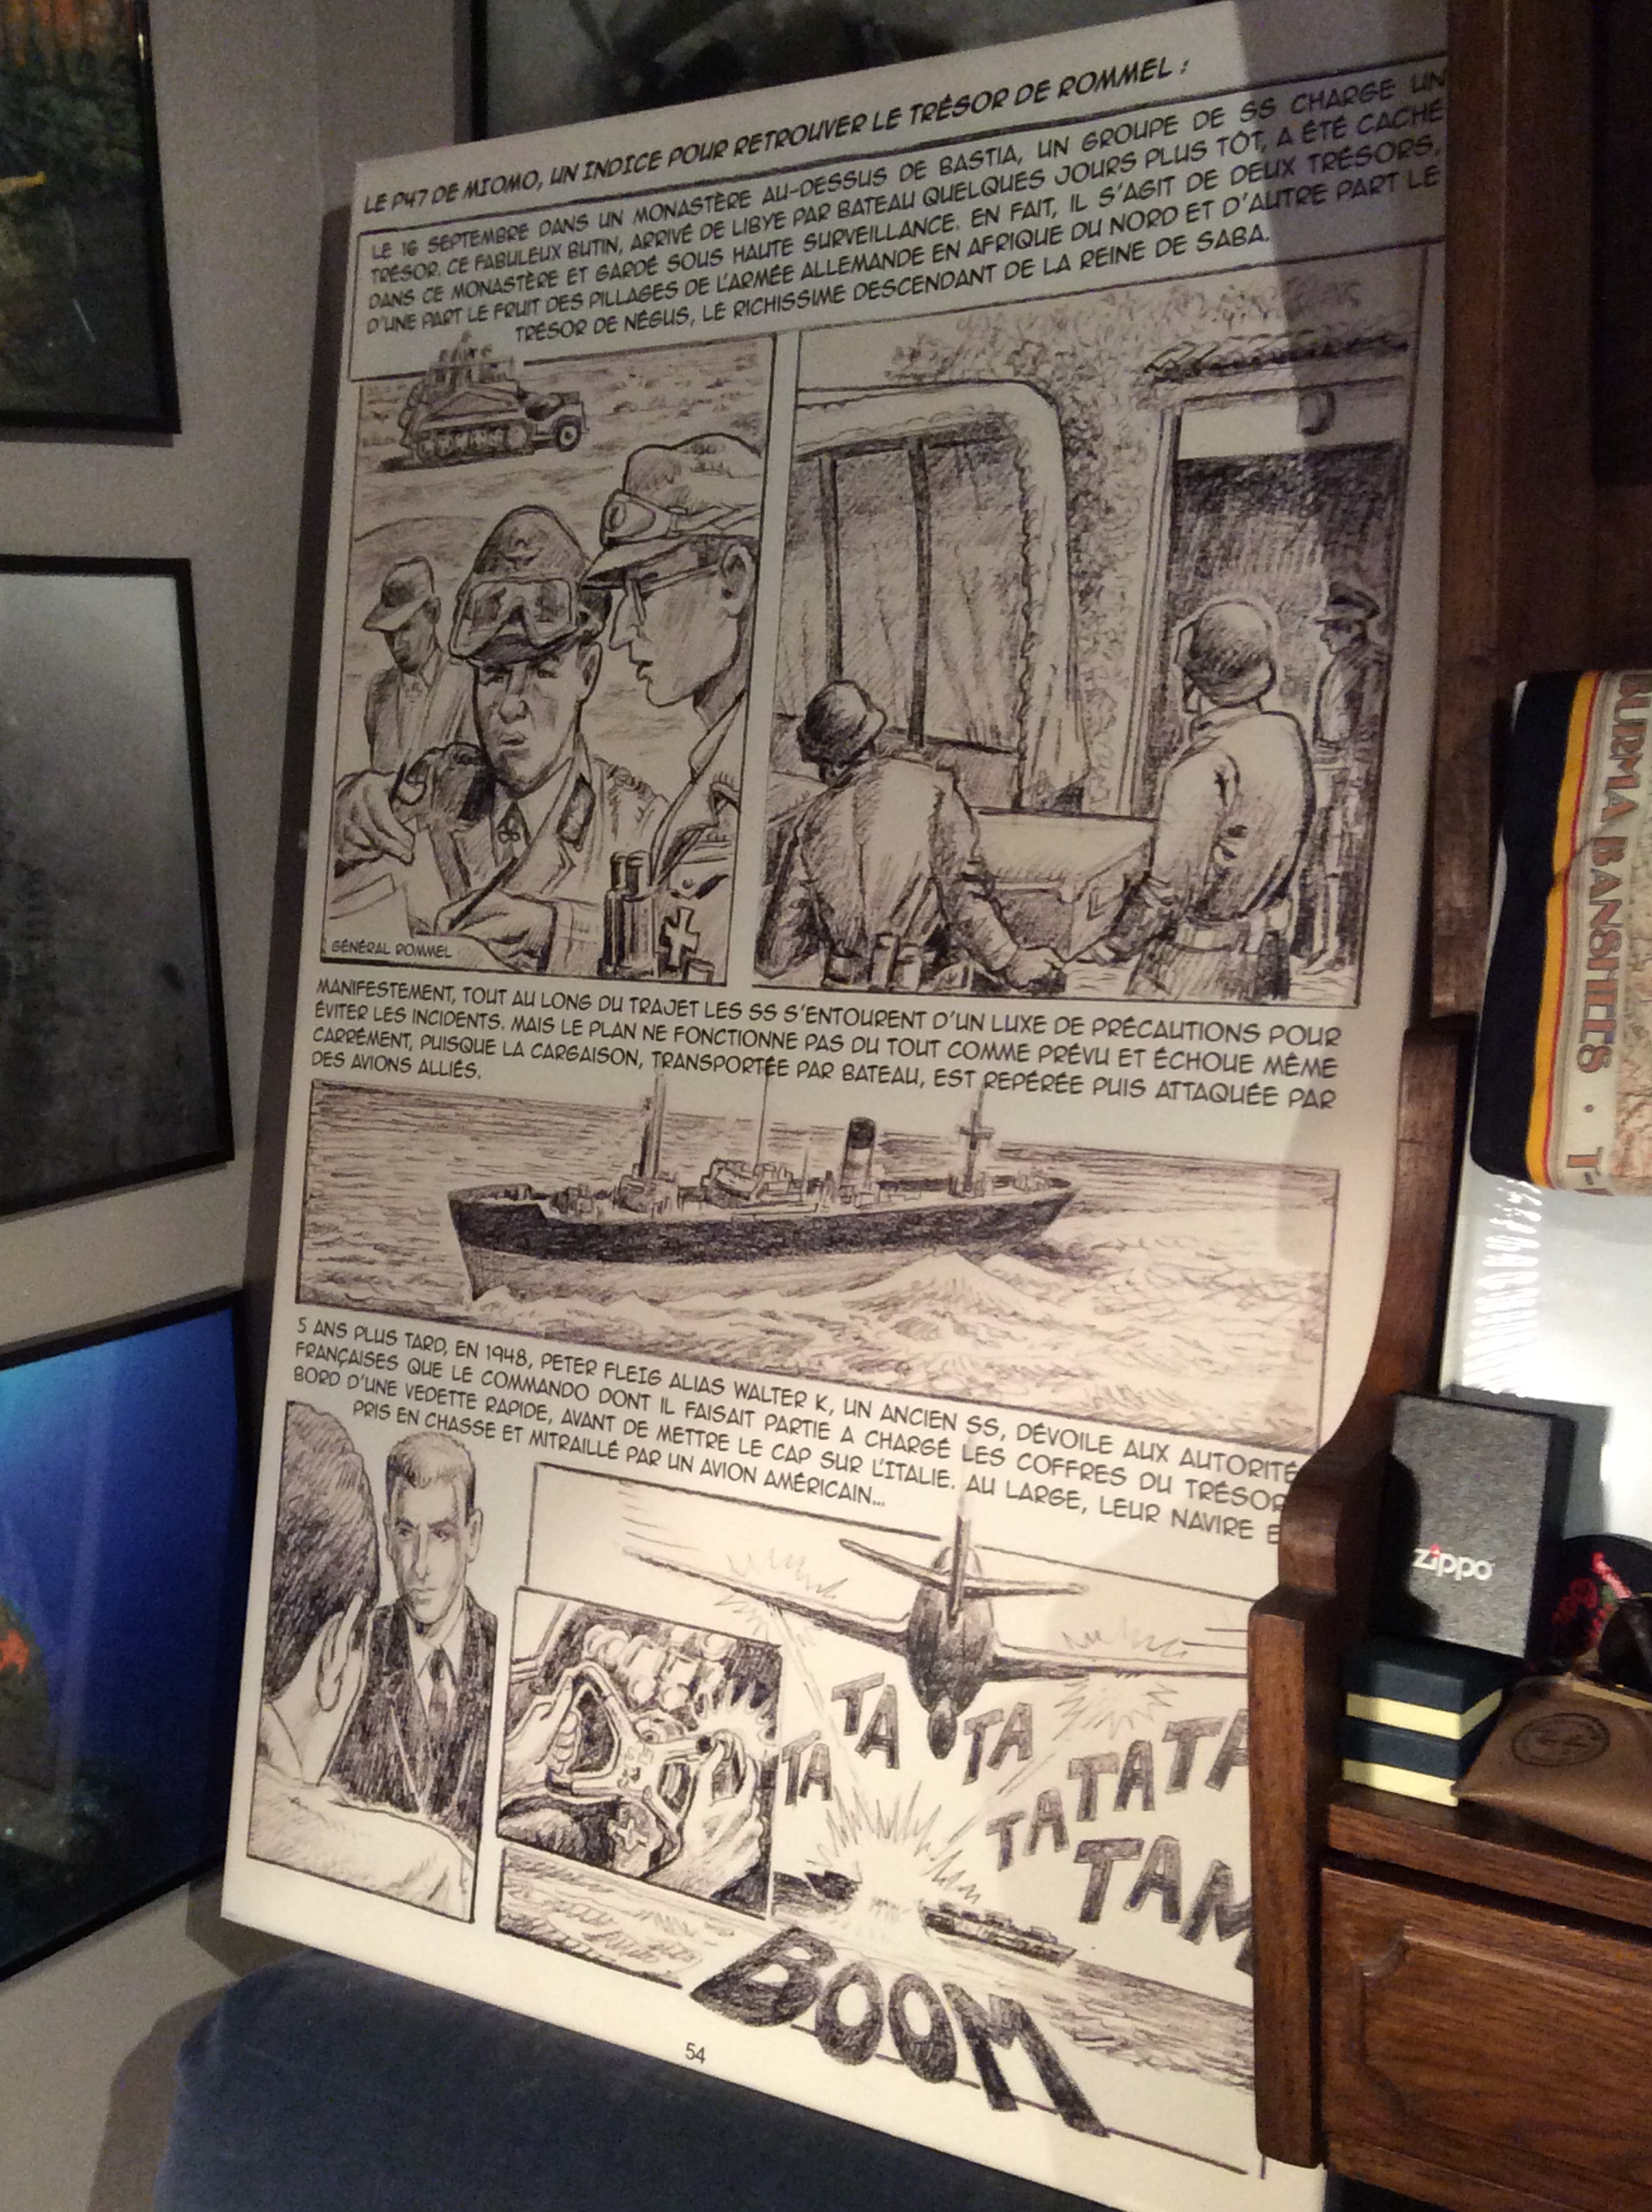 LE P47 DE MIOMO, UN INDICE POUR RETROUVER LE TRÉSOR DE ROMMEL :
LE 16 SEPTEMBRE DANS UN MONASTÈRE AU-DESSUS DE BASTIA, UN GROUPE DE SS CHARGE UN
TRÉSOR. CE FABULEUX BUTIN, ARRIVÉ DE LIBYE PAR BATEAU QUELQUES JOURS PLUS TÔT, A ÉTÉ CACHÉ
DANS CE MONASTÈRE ET GARDÉ SOUS HAUTE SURVEILLANCE. EN FAIT, IL S'AGIT DE DEUX TRÉSORS,
D'UNE PART LE FRUIT DES PILLAGES DE L'ARMÉE ALLEMANDE EN AFRIQUE DU NORD ET D'AUTRE PART LE
TRÉSOR DE NÉGUS, LE RICHISSIME DESCENDANT DE LA REINE DE SABA.
GÉNÉRAL ROMMEL
MANIFESTEMENT, TOUT AU LONG DU TRAJET LES SS S'ENTOURENT D'UN LUXE DE PRÉCAUTIONS POUR
ÉVITER LES INCIDENTS. MAIS LE PLAN NE FONCTIONNE PAS DU TOUT COMME PRÉVU ET ÉCHOUE MÊME
CARRÉMENT, PUISQUE LA CARGAISON, TRANSPORTÉE PAR BATEAU, EST REPÉRÉE PUIS ATTAQUÉE PAR
DES AVIONS ALLIÉS.
5 ANS PLUS TARD, EN 1948, PETER FLEIG ALIAS WALTER K, UN ANCIEN SS, DÉVOILE AUX AUTORITÉ
FRANÇAISES QUE LE COMMANDO DONT IL FAISAIT PARTIE A CHARGÉ LES COFFRES DU TRÉSOR
BORD D'UNE VEDETTE RAPIDE, AVANT DE METTRE LE CAP SUR L'ITALIE. AU LARGE, LEUR NAVIRE E
PRIS EN CHASSE ET MITRAILLÉ PAR UN AVION AMÉRICAIN...
TA TA TA
TA TATATA
TAM
BOOM
54
BURMA BANSHEES • T-
zippo